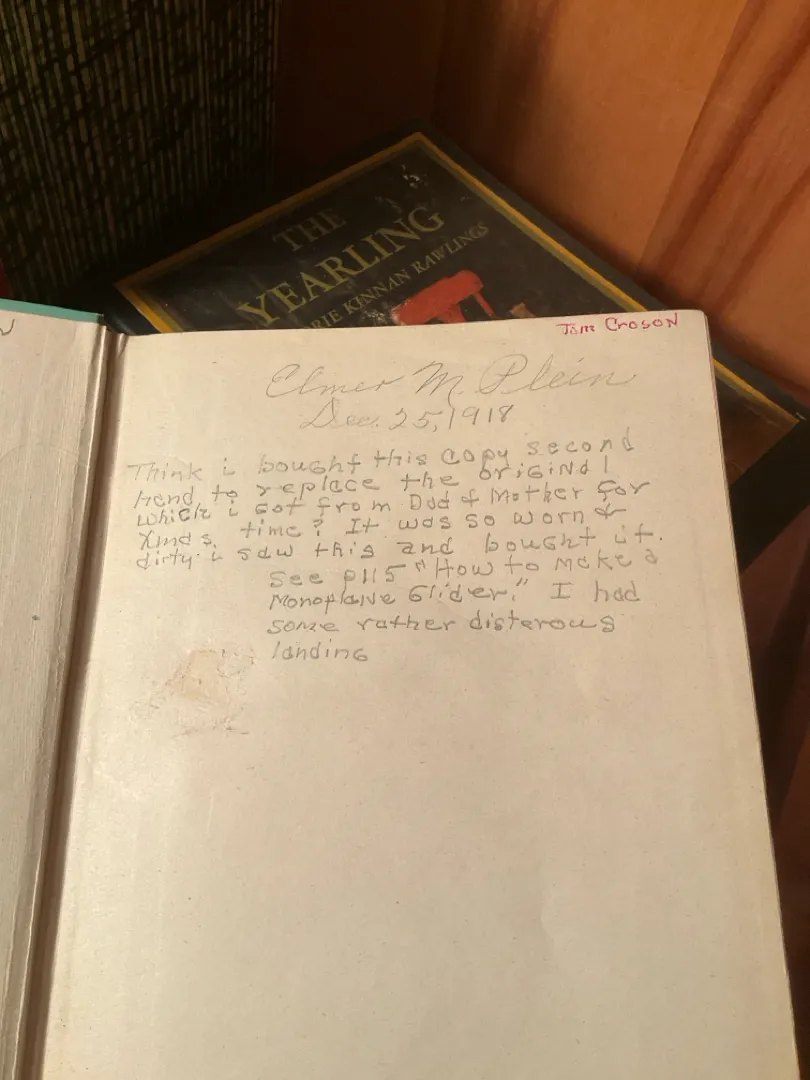 THE
YEARLING
RIE KINNAN RAWLINGS
Tom Croson
Elmer M. Plein
Dec. 25, 1918
Think i bought this copy second
hand to replace the original
which i got from Dad & Mother for
Xmas. time? It was so worn &
dirty i saw this and bought it.
See p115 "How to make a
Monoplane Glider." I had
some rather disterous
landing